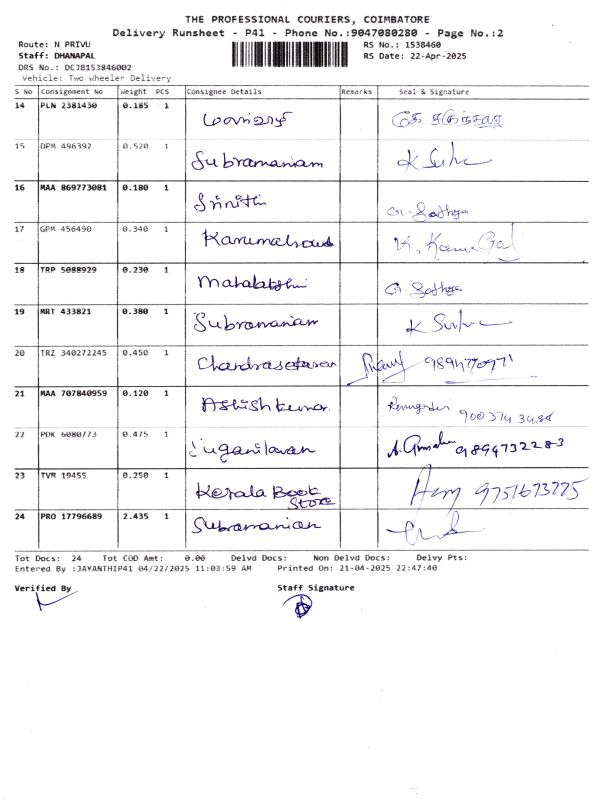 THE PROFESSIONAL COURIERS, COIMBATORE
Delivery Runsheet - P41 - Phone No.:9047080280 - Page No.:2
Route: N PRIVU RS No.: 1538460
Staff: DHANAPAL RS Date: 22-Apr-2025
DRS No.: DCJB153846002
Vehicle: Two Wheeler Delivery
S No Consignment No Weight PCS Consignee Details Remarks Seal & Signature
14 PLN 2381430 0.185 1
15 DPM 496392 0.520 1 Subramaniam
16 MAA 869773081 0.180 1 Srinithi G. Sathya
17 GPM 456490 0.340 1
18 TRP 5088929 0.230 1 Mahalakshmi G. Sathya
19 MRT 433821 0.380 1 Subramaniam
20 TRZ 340272245 0.450 1 Chandrasekaran
21 MAA 707840959 0.120 1 Ashish kumar
22 PDK 6080773 0.475 1 9894732283
23 TVM 19455 0.250 1 Kerala Book Store 9751673775
24 PRO 17796689 2.435 1 Subramanian
Tot Docs: 24 Tot COD Amt: 0.00 Delvd Docs: Non Delvd Docs: Delvy Pts:
Entered By :JAYANTHIP41 04/22/2025 11:03:59 AM Printed On: 21-04-2025 22:47:40
Verified By Staff Signature